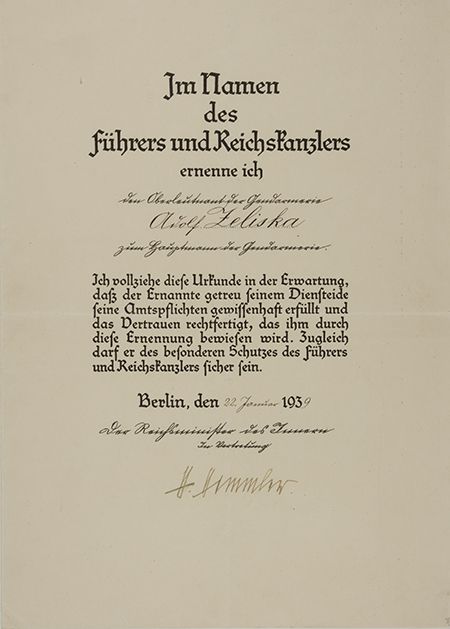 Im Namen
des
Führers und Reichskanzlers
ernenne ich
den Oberleutnant der Gendarmerie
Adolf Zeliska
zum Hauptmann der Gendarmerie.
Ich vollziehe diese Urkunde in der Erwartung,
daß der Ernannte getreu seinem Diensteide
seine Amtspflichten gewissenhaft erfüllt und
das Vertrauen rechtfertigt, das ihm durch
diese Ernennung bewiesen wird. Zugleich
darf er des besonderen Schutzes des Führers
und Reichskanzlers sicher sein.
Berlin, den 22. Januar 1939
Der Reichsminister des Innern
In Vertretung
H. Himmler.